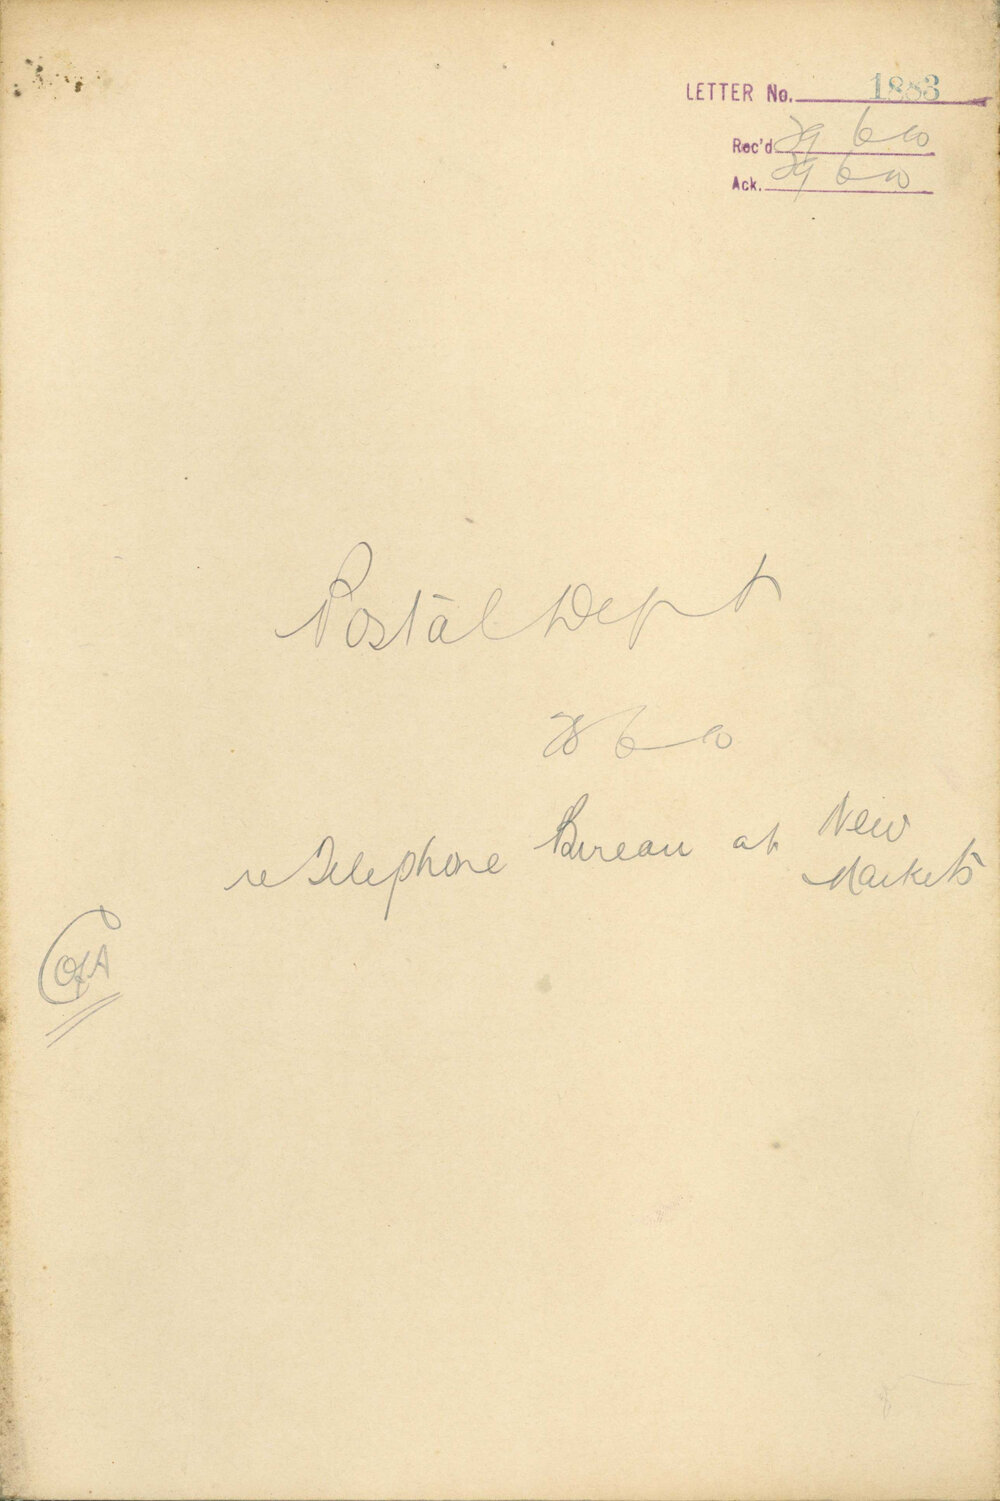 LETTER No. 1883
Rec'd 29 6 10
Ack. 29 6 10
Postal Dept
28 6 10
re Telephone Bureau at New
Markets